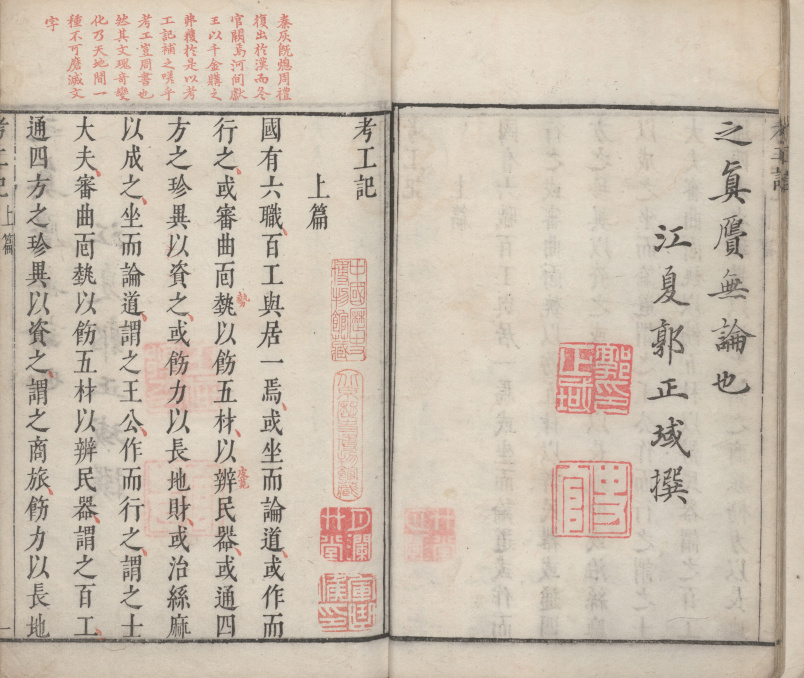 之眞贗無論也
江夏郭正域撰
郭正域印
史官
秦灰旣熄周禮
復出於漢而冬
官闕焉河間獻
王以千金購之
弗穫於是以考
工記補之嗟乎
考工豈周書也
然其文瑰奇變
化乃天地間一
種不可磨滅文
字
考工記
上篇
中國歷史博物館藏
國有六職百工與居一焉或坐而論道或作而
行之或審曲靣埶以飭五材以辨民器或通四
勢
度寬
方之珍異以資之或飭力以長地財或治絲麻
以成之坐而論道謂之王公作而行之謂之士
大夫審曲靣埶以飭五材以辨民器謂之百工
通四方之珍異以資之謂之商旅飭力以長地
考工記 上篇 一